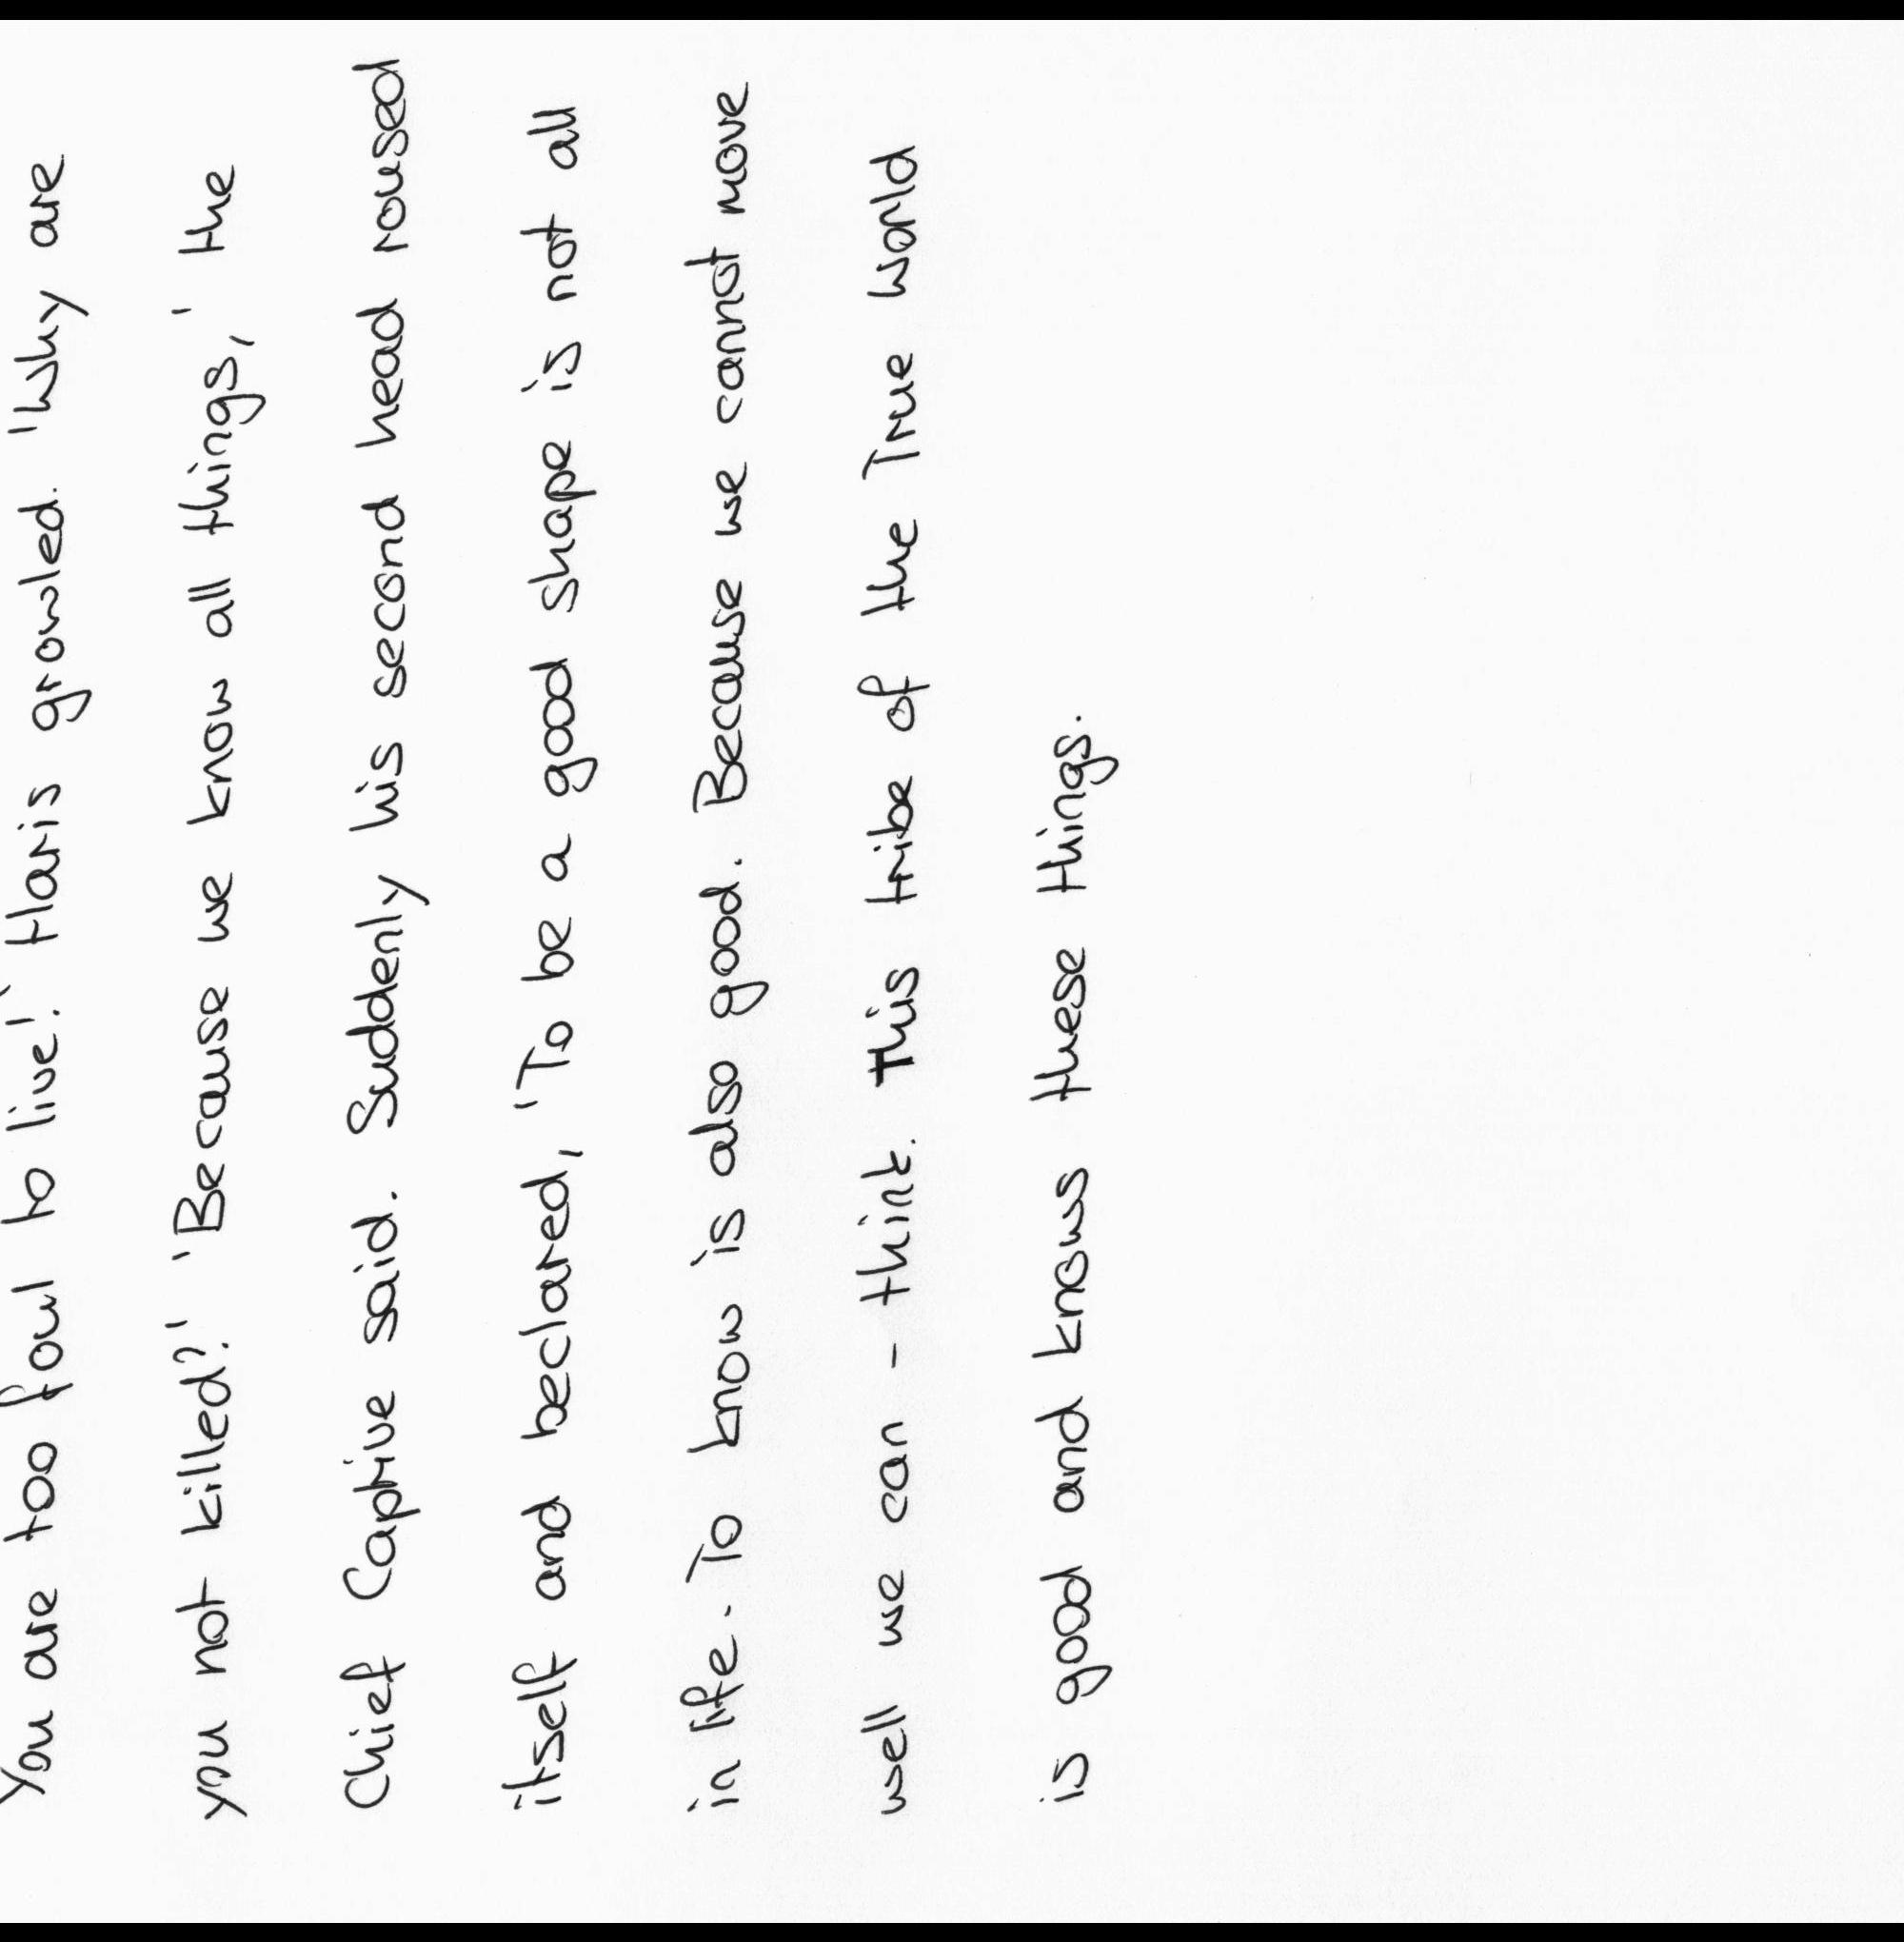 You are too foul to live!' Haris growled. 'Why are
you not killed?' 'Because we know all things,' the
Chief Captive said. Suddenly his second head roused
itself and beclared, 'To be a good shape is not all
in life. To know is also good. Because we cannot move
well we can - think. This tribe of the True World
is good and knows these things.